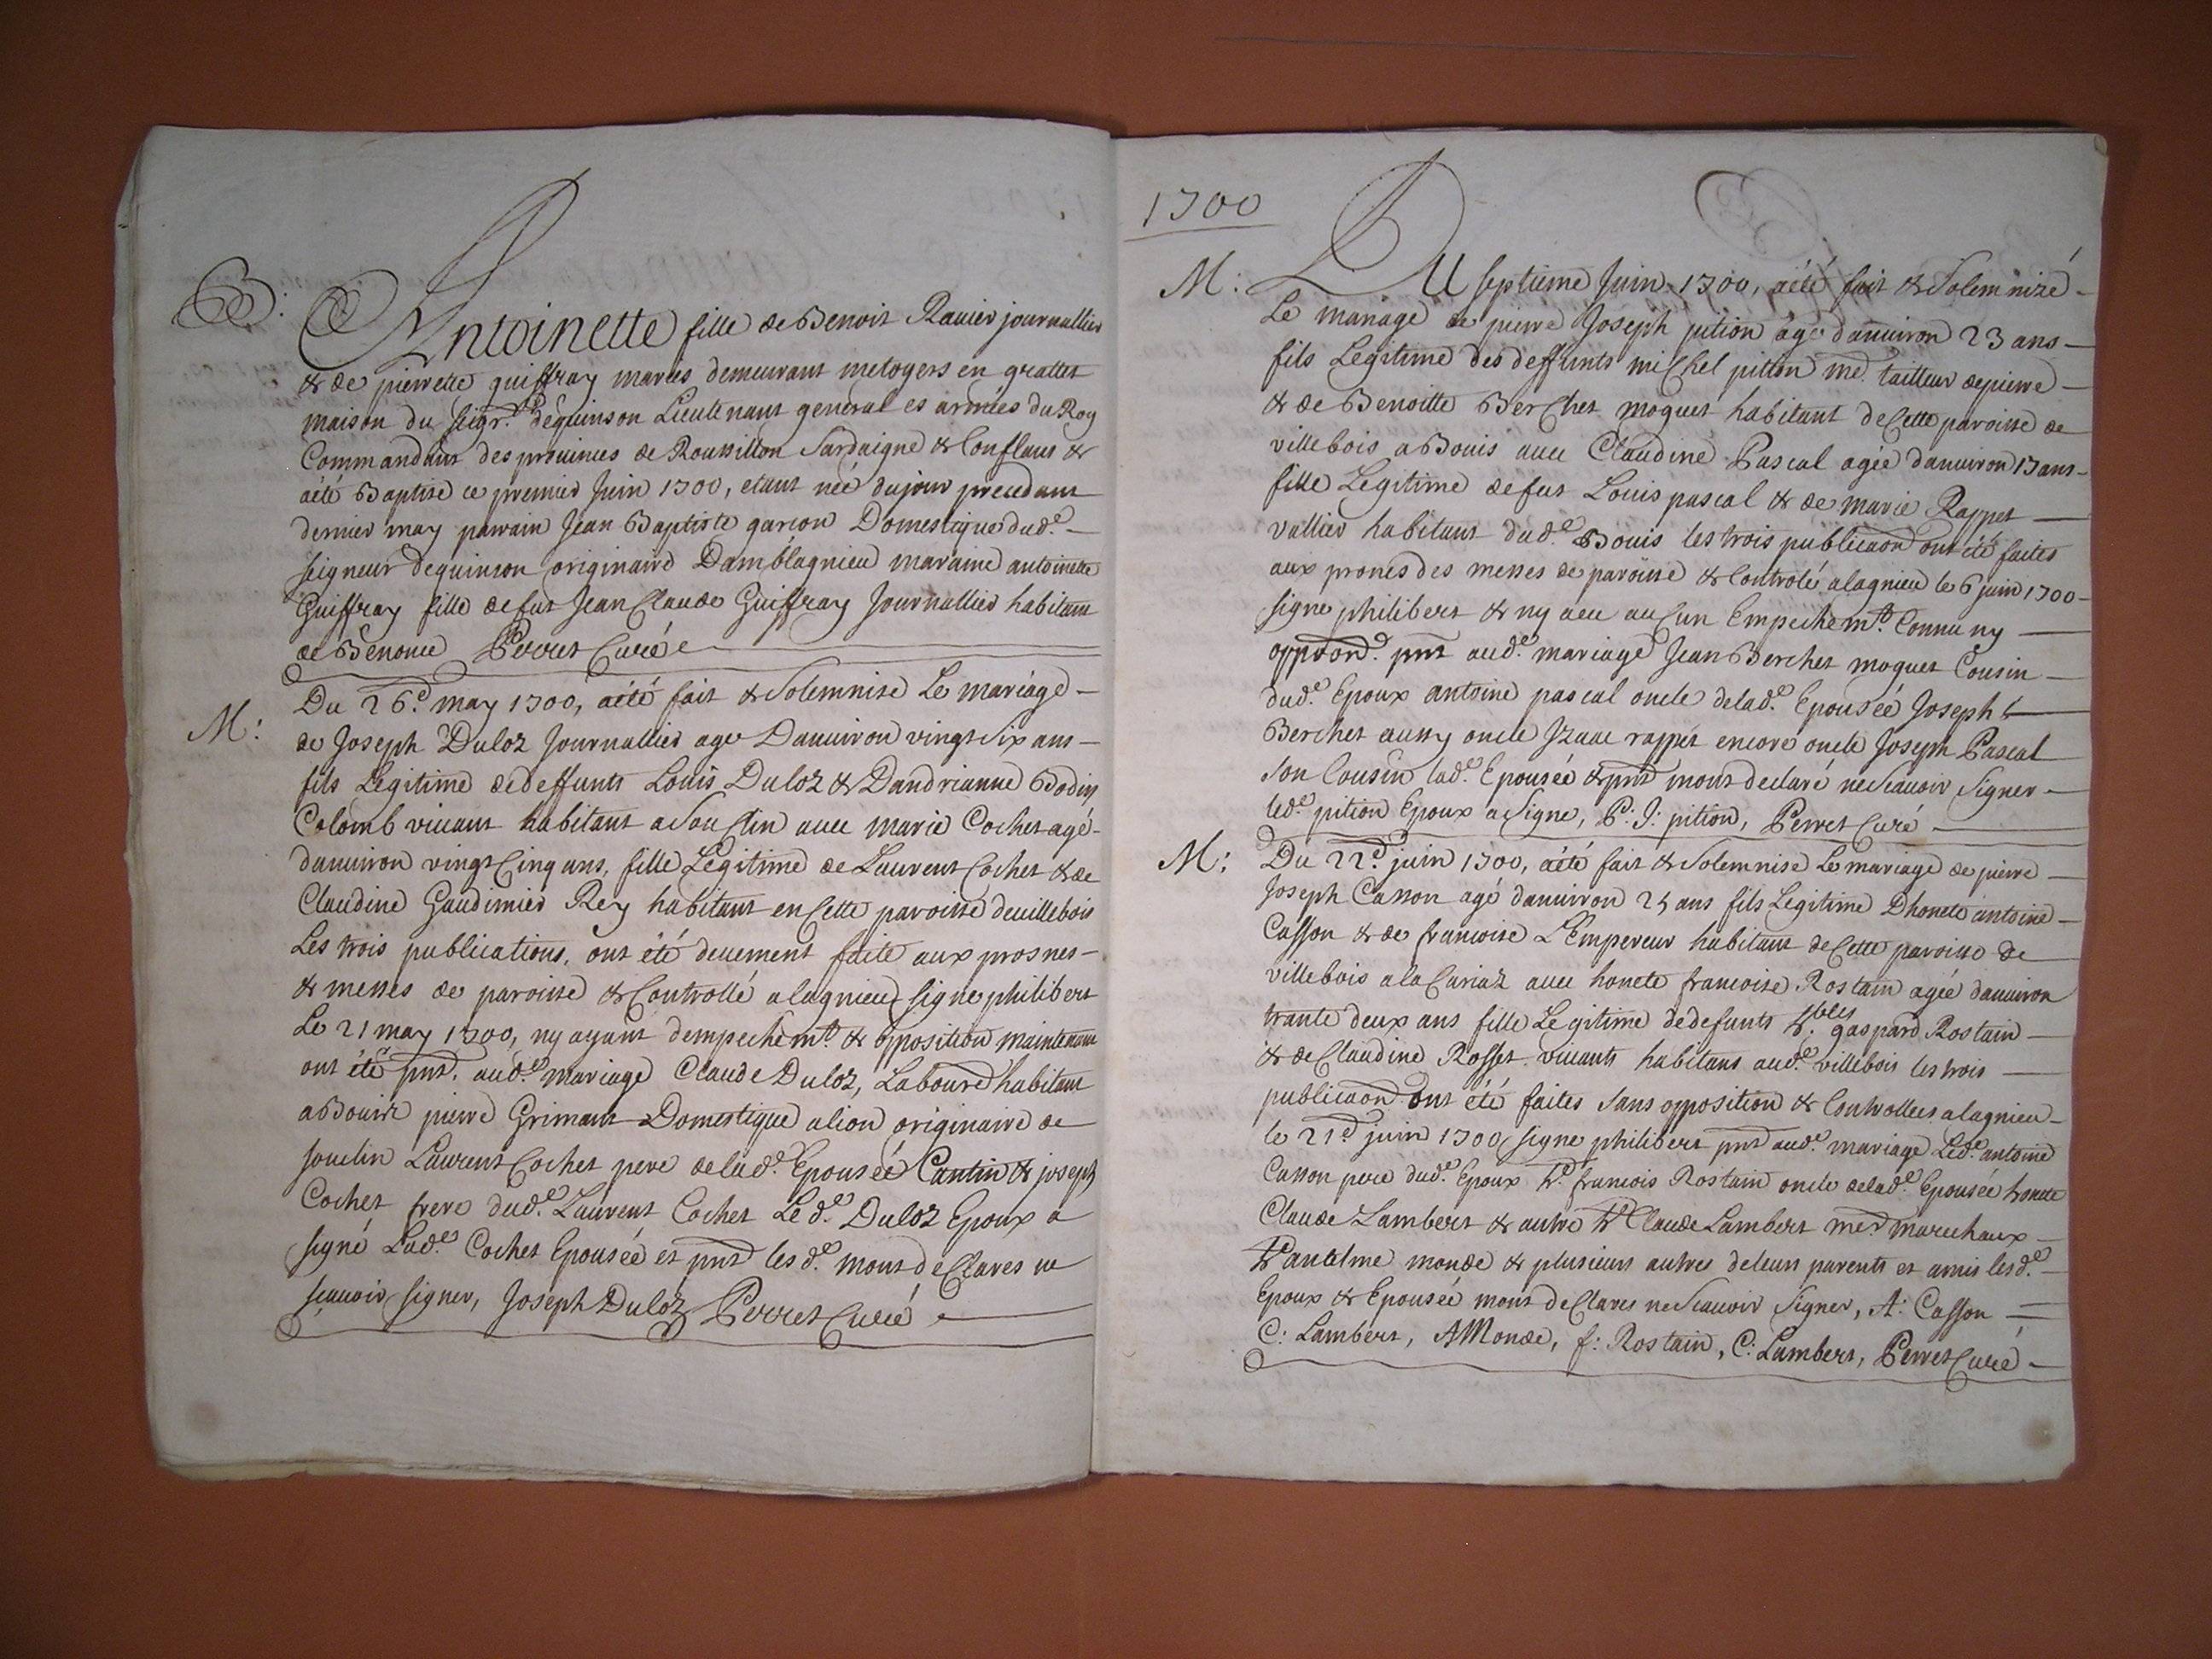 B:
Antoinette fille de Benoit Ravier journallier
& de pierrette guiffray mariés demeurant metoyers en grattet
maison du seigr. déquinson Lieutenant general es armées du Roy
Commandant des provinces de Roussillon Sardaigne & Conflans &
aété Baptisé ce premier Juin 1700, etant née dujour precedant
dernier may parrain Jean Baptiste garcon Domestique dude.
seigneur dequinson originaire Damblagnieu maraine antoinette
Guiffray fille defut Jean Claude Guiffray Journallier habitant
de Benonce Perret Curé
M:
Du 26e. may 1700, aété fait & Solemnise Le mariage
de Joseph Duloz Journallier age Danuiron vingt Six ans
fils Legitime dedeffunts Louis Duloz & Dandrianne Bodin
Colomb viuant habitant a Souclin auec marie Cochet agé
danuiron vingt Cinq ans, fille Legitime de Laurent Cochet & de
Claudine Gaudimier Rey habitant en Cette paroisse deuillebois
Les trois publications, ont été deuement faite aux prosnes
& messes de paroisse & Controllé alagnieu signe philibert
Le 21 may 1700, ny ayant dempechemt. & opposition maintenant
ont été pnt. aude. mariage Claude Duloz, Laboured habitant
a Bouis pierre Grimant Domestique alion originaire de
souclin Laurent Cochet pere delade. Epousée Cantin & joseph
Cochet frere dude. Laurent Cochet Le de. Duloz Epoux a
signé Lade. Cochet Epousée et pnt les de. mont de Clares ne
scauoir signer, Joseph Duloz Perret Curé
1700
M:
Du septieme Juin 1700, aété fait & Solemnizé
Le mariage de pierre Joseph pition âgé danuiron 23 ans
fils Legitime des deffunts michel pition me. tailleur depierre
& de Benoitte Berchet moquet habitant de Cette paroisse de
villebois a Bouis auec Claudine Pascal agée danuiron 17 ans
fille Legitime defut Louis pascal & de marie Rappet
vallier habitant dude. Bouis les trois publicaon ont été faites
aux prones des messes de paroisse & Controlé alagnieu le 6 juin 1700
signe philibert & ny aeu auCun Empechemt. Connu ny
oppoond. pnt aude. mariage Jean Berchet moquet Cousin
dude. Epoux antoine pascal oncle delade. Epousée Joseph
Berchet aussy oncle Izaac rappet encore oncle Joseph Pascal
son Cousin lade. Epousée & pnt mont declaré ne Scauoir Signer
lede. pition Epoux a Signe, P: J: pition, Perret Curé
M:
Du 22e. juin 1700, aété fait & Solemnise Le mariage de pierre
Joseph Casson agé danuiron 25 ans fils Legitime Dhonete antoine
Casson & de francoise L'Empereur habitant de Cette paroisse de
villebois ala Cariaz auec honete francoise Rostain agée danuiron
trante deux ans fille Legitime dedefunts h.bles gaspard Rostain
& de Claudine Rosset viuants habitans aude. villebois les trois
publicaon ont été faites Sans opposition & Controllees alagnieu
le 21e. juin 1700 signe philibert pnt aude. mariage Lede. antoine
Casson pere dude. Epoux he. francois Rostain oncle delade. Epousée honete
Claude Lambert & autre he Claude Lambert mes. marechaux
he antelme monde & plusieurs autres deleurs parents et amis les de.
Epoux & Epousée mont de Clares ne Scauoir Signer, A: Casson
C: Lambert, A Monde, f: Rostain, C: Lambert, Perret Curé